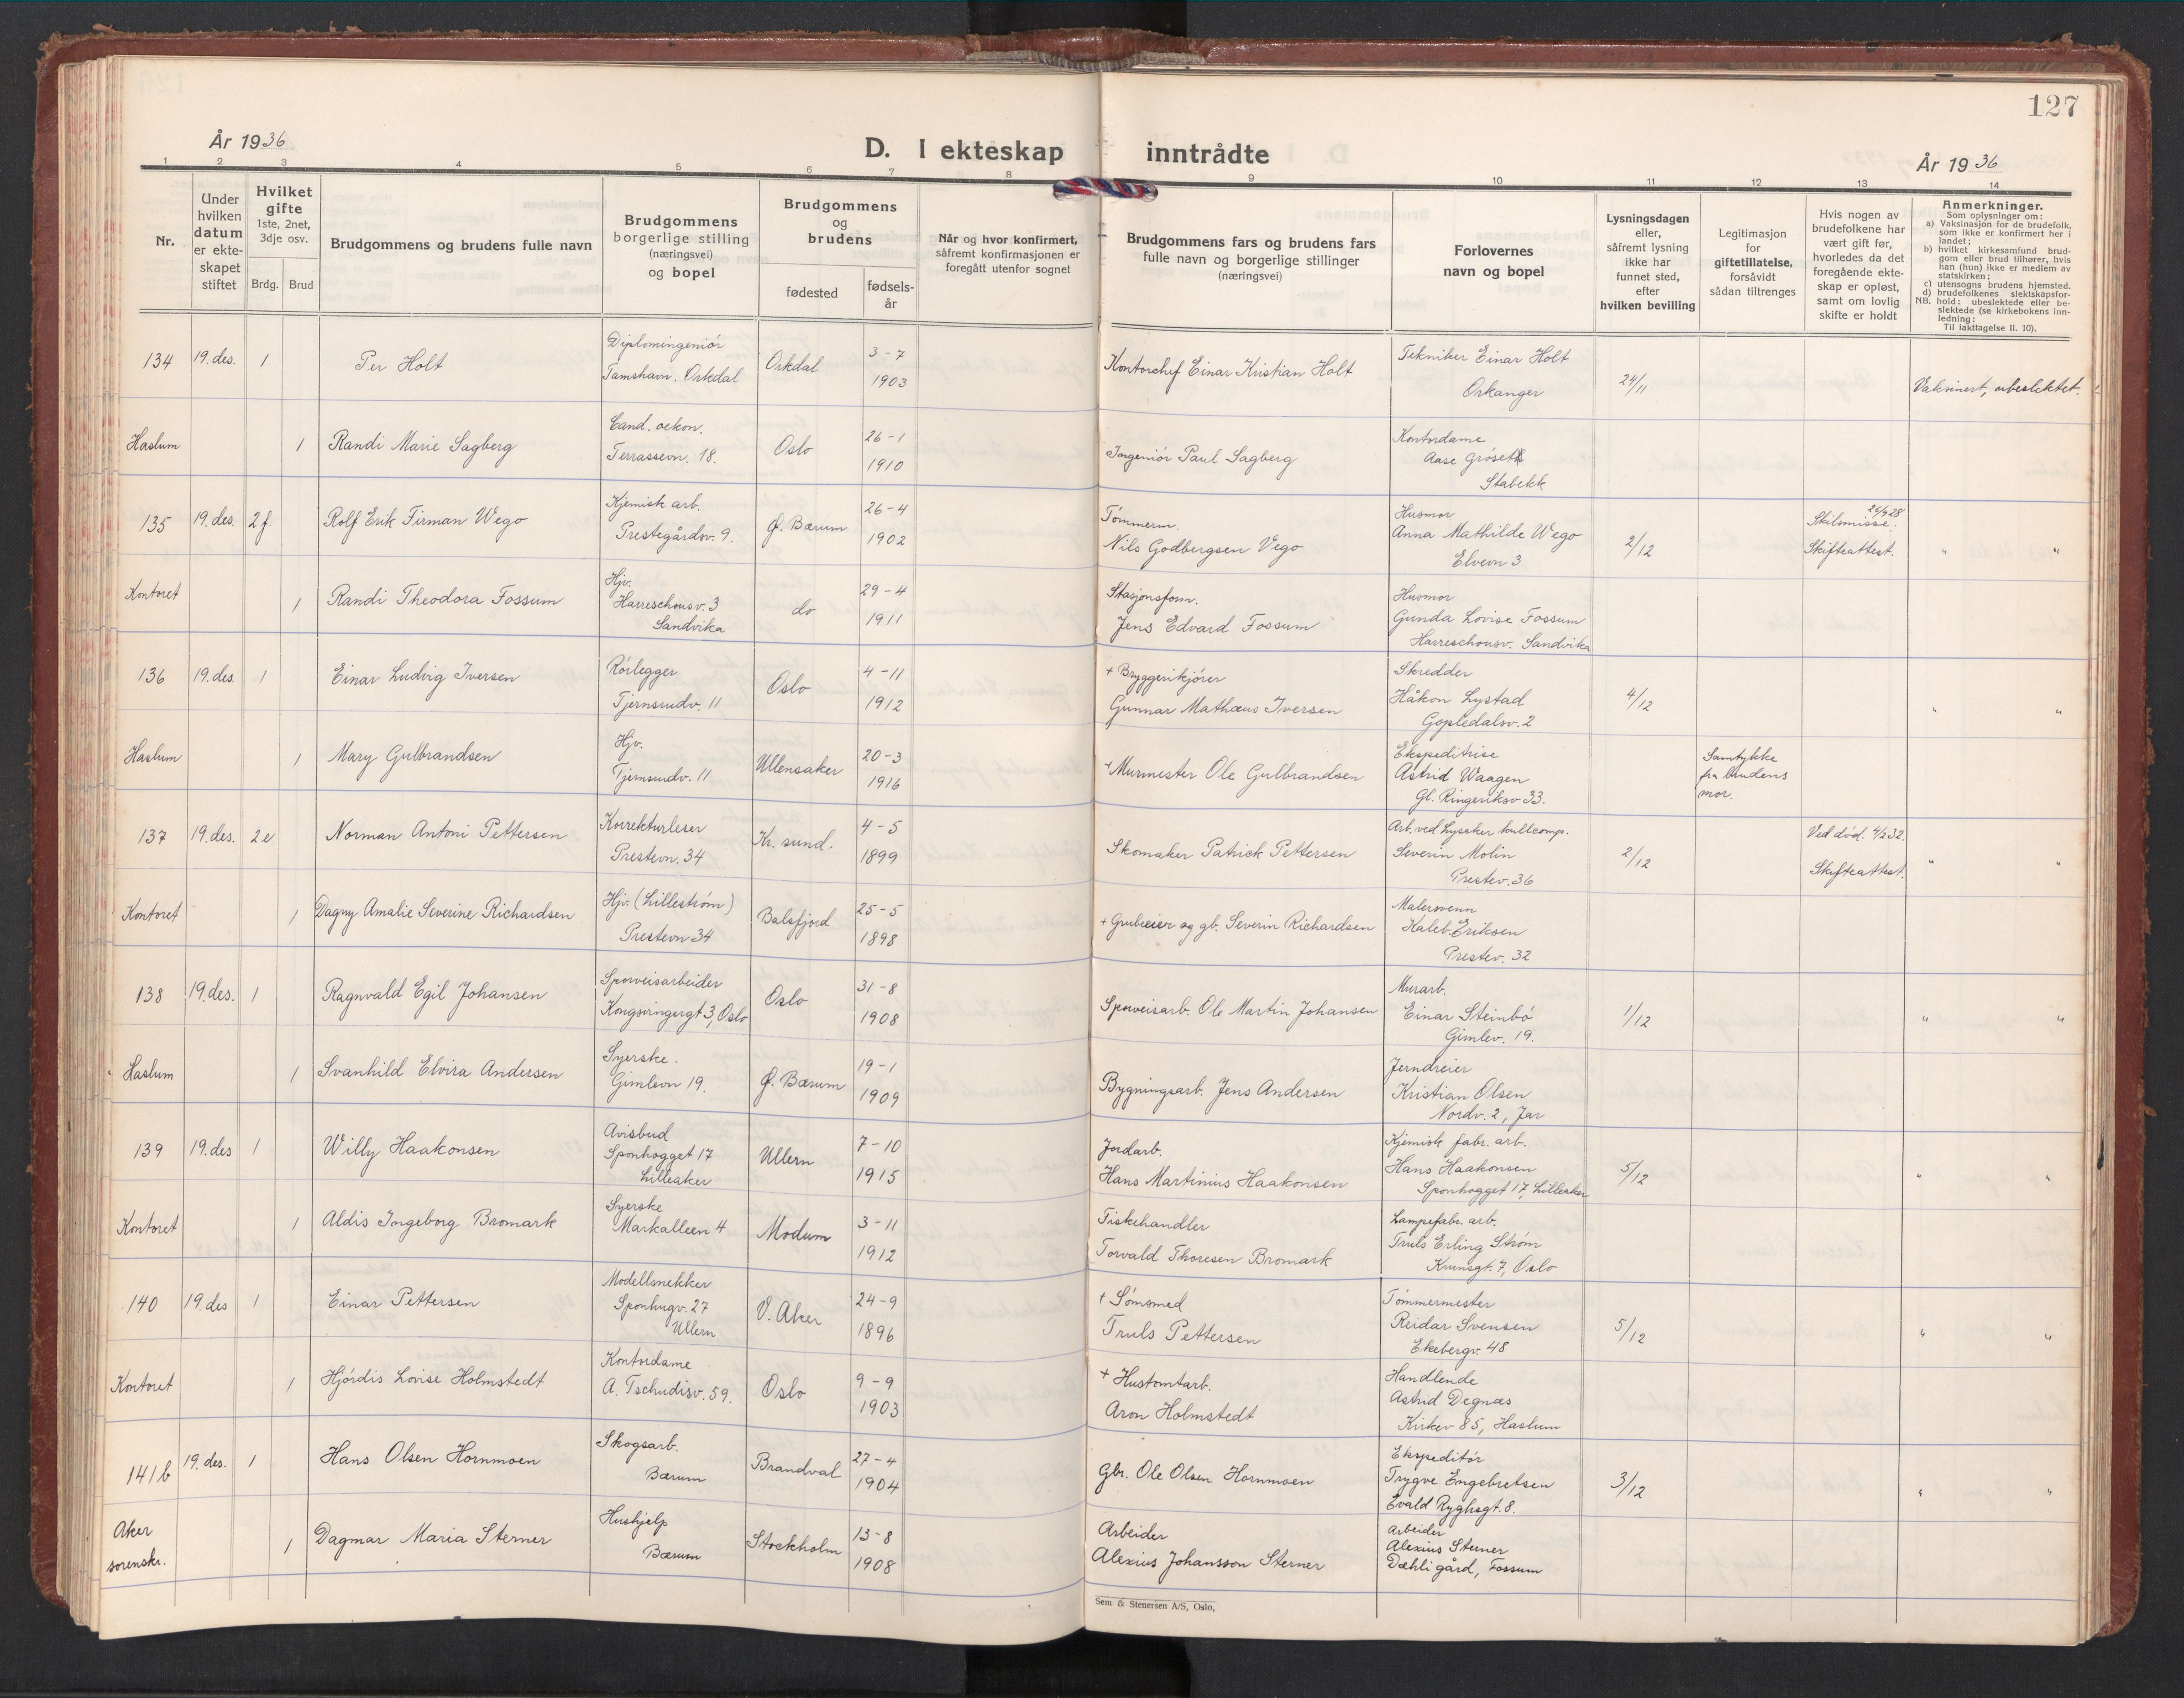 127
År 1936
D. I ekteskap inntrådte
År 1936
1 2 3 4 5 6 7 8 9 10 11 12 13 14
Nr.
Under hvilken datum er ekte-skapet stiftet
Hvilket gifte 1ste, 2net, 3dje osv.
Brdg. Brud
Brudgommens og brudens fulle navn
Brudgommens borgerlige stilling (næringsvei) og bopel
Brudgommens og brudens
fødested
fødsels-år
Når og hvor konfirmert, såfremt konfirmasjonen er foregått utenfor sognet
Brudgommens fars og brudens fars fulle navn og borgerlige stillinger (næringsvei)
Forlovernes navn og bopel
Lysningsdagen eller, såfremt lysning ikke har funnet sted, efter hvilken bevilling
Legitimasjon for giftetillatelse, forsåvidt sådan tiltrenges
Hvis nogen av brudefolkene har vært gift før, hvorledes da det foregående ekte-skap er opløst, samt om lovlig skifte er holdt
Anmerkninger.
Som oplysninger om:
a) Vaksinasjon for de brudefolk, som ikke er konfirmert her i landet;
b) hvilket kirkesamfund brud-gom eller brud tilhører, hvis han (hun) ikke er medlem av statskirken;
c) utensogns brudens hjemsted.
d) brudefolkenes slektskapsfor-hold: ubeslektede eller be-slektede (se kirkebokens inn-ledning:
NB.
Til iakttagelse II. 10).
134 19. des. 1 Per Holt Diplomingeniør Tamshavn. Orkdal Orkdal 3-7 1903 Kontorchef Einar Kristian Holt Tekniker Einar Holt Orkanger 24/11 Vaksinert, ubeslektet.
Haslum 1 Randi Marie Sagberg Cand. oekon. Terrassevn. 18. Oslo 26-1 1910 Ingeniør Paul Sagberg Kontordame Aase Grøseth Stabekk
135 19. des. 2 f. Rolf Erik Firman Wego Kjemisk arb. Prestegårdsv. 9. Ø. Bærum 26-4 1902 Tømmerm. Nils Godbergsen Vego Husmor Anna Mathilde Wego Elvevn 3 2/12 Skilsmisse. Skifteattest. " "
Kontoret 1 Randi Theodora Fossum Hjv. Harreschousv. 3 Sandvika do 29-4 1911 Stasjonsform. Jens Edvard Fossum Husmor Gunda Lovise Fossum Harreschousv. Sandvika
136 19. des. 1 Einar Ludvig Iversen Rørlegger Tjernsrudv. 11 Oslo 4-11 1912 + Bryggerikjører Gunnar Mathæus Iversen Skredder Håkon Lystad Gopledalsv. 2 4/12 " "
Haslum 1 Mary Gulbrandsen Hjv. Tjernsrudv. 11 Ullensaker 20-3 1916 + Murmester Ole Gulbrandsen Ekspeditrise Astrid Waagen Gl. Ringeriksv 33. Samtykke fra brudens mor.
137 19. des. 2 e Norman Antoni Pettersen Korrekturleser Prestevn. 34 Kr. sund. 4-5 1899 Skomaker Patrick Pettersen Arb. ved Lysaker kullcomp. Severin Molin Prestev. 36 2/12 Ved død. 4/2 32. Skifteattest. " "
Kontoret 1 Dagny Amalie Severine Richardsen Hjv. (Lillestrøm) Prestevn 34 Balsfjord 25-5 1898 + Grubeeier og gb. Severin Richardsen Malersvenn Kaleb Eriksen Prestev. 32
138 19. des. 1 Ragnvald Egil Johansen Sporveisarbeider Kongsvingergt 3, Oslo Oslo 31-8 1908 Sporveisarb. Ole Martin Johansen Murarb. Einar Steinbø Gimlev. 19. 1/12 " "
Haslum 1 Svanhild Elvira Andersen Syerske. Gimlevn 19. Ø. Bærum 19-1 1909 Bygningsarb. Jens Andersen Jerndreier Kristian Olsen Nordv. 2, Jar
139 19. des 1 Willy Haakonsen Avisbud Sponhogget 17 Lilleaker Ullern 7-10 1915 Jordarb. Hans Martinius Haakonsen Kjemisk fabr. arb. Hans Haakonsen Sponhogget 17, Lilleaker 5/12 " "
Kontoret 1 Aldis Ingeborg Bromark Syerske Markalleen 4 Modum 3-11 1912 Fiskehandler Torvald Thoresen Bromark Lampefabr. arb. Truls Erling Strøm Krumsgt. 7, Oslo
140 19. des 1 Einar Pettersen Modellsnekker Sponhugv. 27 Ullern V. Aker 24-9 1896 + Sømsmed Truls Pettersen Tømmermester Reidar Svensen Ekebergv. 48 5/12 " "
Kontoret 1 Hjørdis Lovise Holmstedt Kontordame A. Tschudisv. 59. Oslo 9-9 1903 + Hustomtarb. Aron Holmstedt Handlende Astrid Degnæs Kirkev 85, Haslum
141 b 19. des. 1 Hans Olsen Hornmoen Skogsarb. Bærum Brandval 27-4 1904 Gbr. Ole Olsen Hornmoen Ekspeditør Trygve Engebretsen Evald Ryghsgt. 8. 3/12 " "
Aker sorenskr. 1 Dagmar Maria Sterner Hushjelp Bærum Stockholm 13-8 1908 Arbeider Alexius Johansson Sterner Arbeider Alexius Sterner Dæhli gård, Fossum
Sem & Stenersen A/S, Oslo,